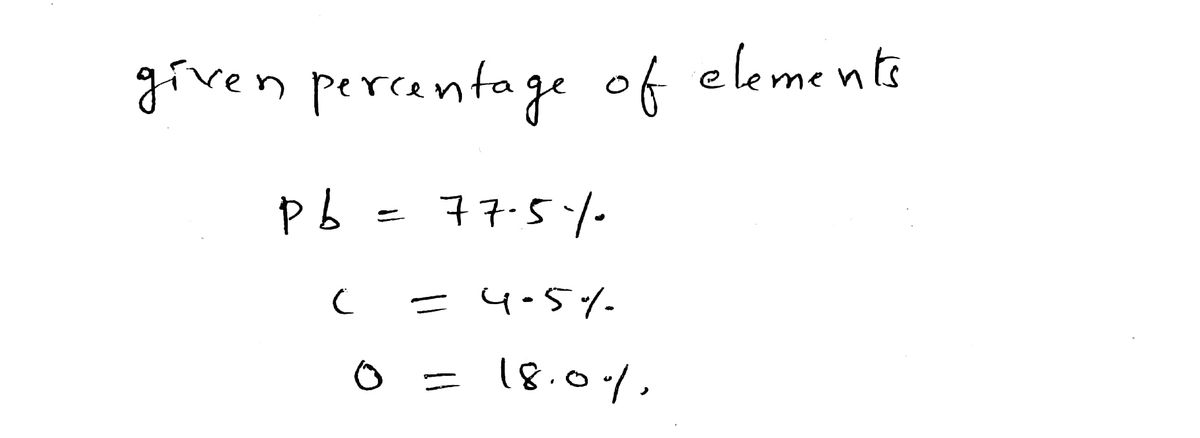 given percentage of elements
Pb = 77.5%
C = 4.5%
O = 18.0%